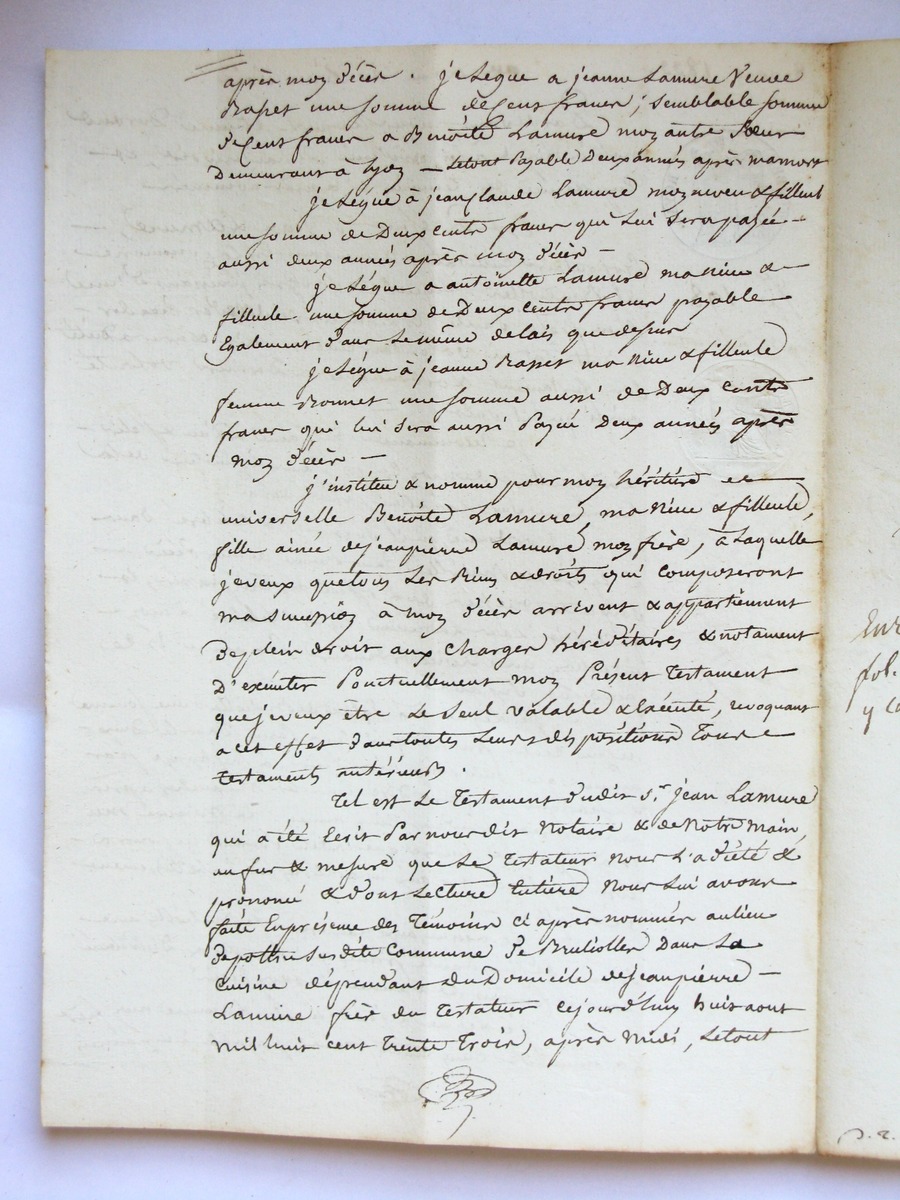 après moy décès. je Legue a jeanne Lamure Veuve
Rapet une somme de Cent francs; semblable somme
de Cent francs a Benoite Lamure moy autre Sœur
Demeurant à Lyoy — Letout Payable Deux années après ma mort
je Légue à jean Claude Lamure moy neveu & filleul
une somme de Deux Cents francs qui Lui sera payée
aussi deux années après moy décès —
je Légue a antoinette Lamure ma Nièce &
filleule une somme de Deux Cents francs payable
Egalement dans Le même delais que dessus
je Légue à jeanne Rapet ma Nièce & filleule
femme Bonnet une somme aussi de Deux Cents
francs qui lui sera aussi Payée Deux années après
moy décès —
j'institue & nomme pour moy héritière
universelle Benoite Lamure, ma Nièce & filleule,
fille ainée de jean pierre Lamure moy frère, à Laquelle
je veux que tous Les Biens & droits qui Composeront
ma succession à moy décès arrivent & appartiennent
De plein droit aux Charges héréditaires & notament
D'exécuter Ponctuellement moy Présent Testament
que je veux être Le Seul Valable & Exécuté, revoquant
a cet effet dans toutes Leurs dispositions Tous
Testaments antérieurs.
Tel est Le Testament dudit Sr. jean Lamure
qui a été Ecrit Par nous dit Notaire & de Notre main,
au fur & mesure que Le Testateur nous L'a dicté &
prononcé & dont Lecture Entière Nous Lui avons
faite En présence des Témoins Ci après nommés au lieu
de susdite Commune de Brullioles Dans La
Cuisine dépendant Du Domicile de jean pierre —
Lamure frère du Testateur Cejourd'huy huit aout
mil huit cent Trente Trois, après Midi, Letout
Enr
fol.